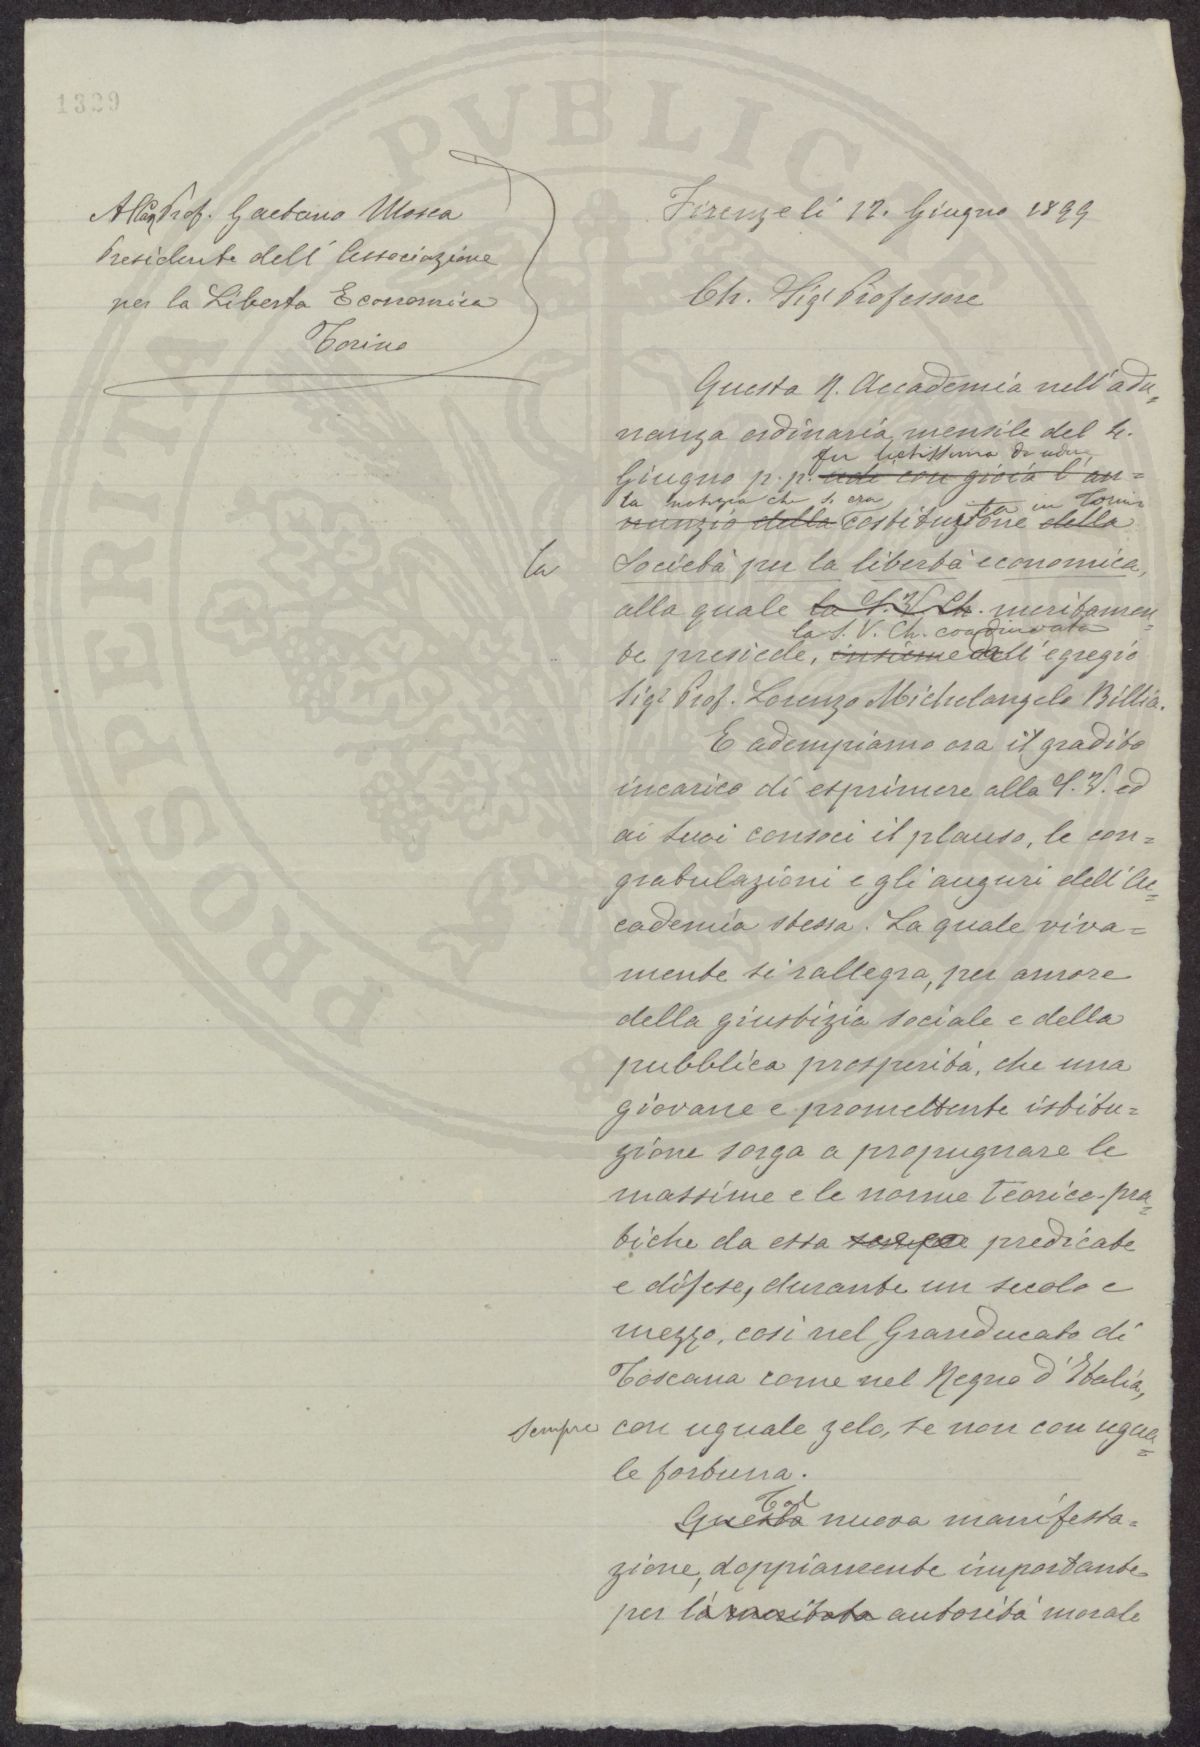 1329
All Eg Prof. Gaetano Mosca
Presidente dell'Associazione
per la Libertà Economica
Torino
Firenze lì 12. Giugno 1899
Ch. Sigr Professore
Questa R. Accademia nell'adu=
nanza ordinaria mensile del 4.
fu lietissima di udire
Giugno p. p. udì con gioia l'an=
la notizia che si era ita in Torino
nunzio della costituzione della
la Società per la libertà economica,
alla quale la S. V. Ch. meritamen=
la S. V. Ch. coadiuvata
te presiede, insieme dell'egregio
Sigr Prof. Lorenzo Michelangelo Billia.
E adempiamo ora il gradito
incarico di esprimere alla S. V. ed
ai suoi consoci il plauso, le con=
gratulazioni e gli auguri dell'Ac=
cademia stessa. La quale viva=
mente si rallegra, per amore
della giustizia sociale e della
pubblica prosperità, che una
giovane e promettente istitu=
zione sorga a propugnare le
massime e le norme teorico-pra=
tiche da essa sempre predicate
e difese, durante un secolo e
mezzo, così nel Granducato di
Toscana come nel Regno d'Italia,
sempre con uguale zelo, se non con ugua=
le fortuna.
Tal
Questa nuova manifesta=
zione, doppiamente importante
per la meritata autorità morale
PROSPERITATI PVBLICAE